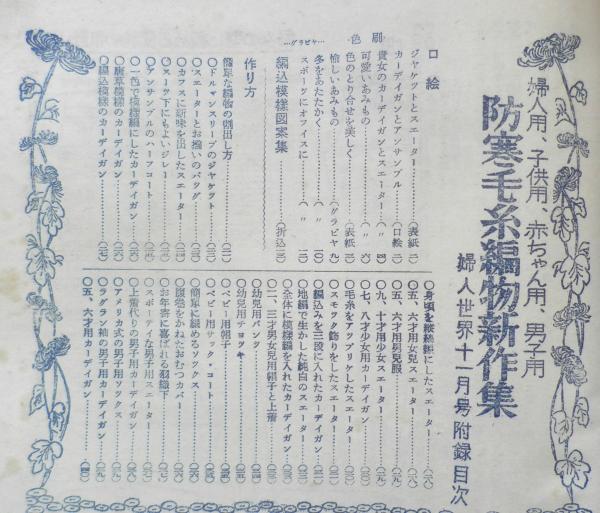 婦人用、子供用、赤ちゃん用、男子用
防寒毛糸編物新作集
婦人世界十一月号附録目次
口絵
色刷
ジャケツトとスエーター
カーデイガンとアンサンブル
貴女のカーデイガンとスエーター
可愛いあみもの
色のとり合せを美しく
グラビヤ
愉しいあみもの
冬をあたたかく
スポーツにオフイスに
編込模様図案集
作り方
簡単な編物の割出し方
○ドルマンスリーブのジャケツト
○スエーターとお揃いのバツグ
○カフスに新味を出したスエーター
○スーツ下にもよいジレー
○アンサンブルのハーフコート
○一色で模様編にしたカーデイガン
○唐草模様のカーデイガン
○編込模様のカーデイガン
○身頃を縦編にしたスエーター
○五、六才用女児スエーター
○五、六才用男児服
○九、十才用少女スエーター
○七、八才少女用カーデイガン
○毛糸をアツプリケしたスエーター
○スモツク飾りをしたスエーター
○編込みを三段に入れたカーデイガン
○地編で生かした純白のスエーター
○全体に模様編を入れたカーデイガン
○二、三才男女児用帽子と上着
○幼児用パンツ
○幼児用チヨツキ
○ベビー用帽子
○ベビー用サツク・コート
○簡単に編めるソツクス
○腹巻をかねたおむつカバー
○お年寄に喜ばれる羽織下
○スポーテイな男子用スエーター
○上着代りの男子用カーデイガン
○アメリカ式の男子用ソツクス
○ラグラン袖の男子用カーデイガン
○五、六才用カーデイガン